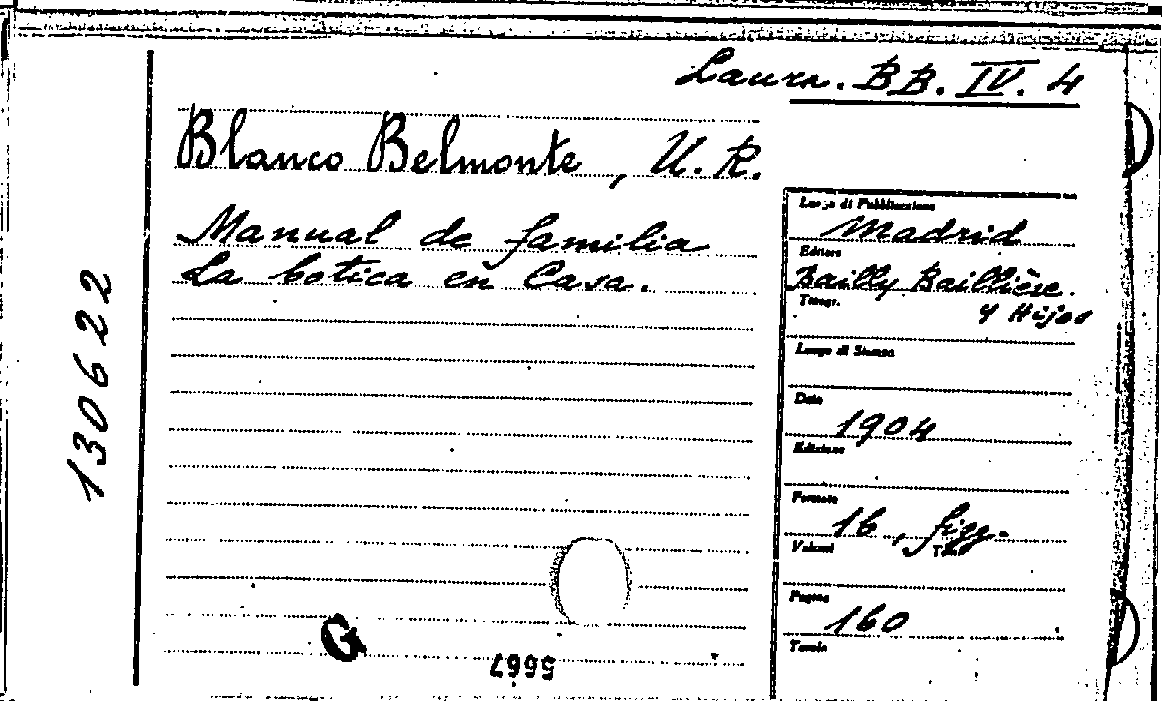 Laurn. BB. IV. 4
Blanco Belmonte, U. R.
Manual de familia
La botica en Casa.
130622
Luogo di Pubblicazione
Madrid
Editore
Bailly Baillière
y Hijos
Tipogr.
Luogo di Stampa
Data
1904
Edizione
Formato
16, figg.
Volumi
Pagine
160
Tavole
G
5667